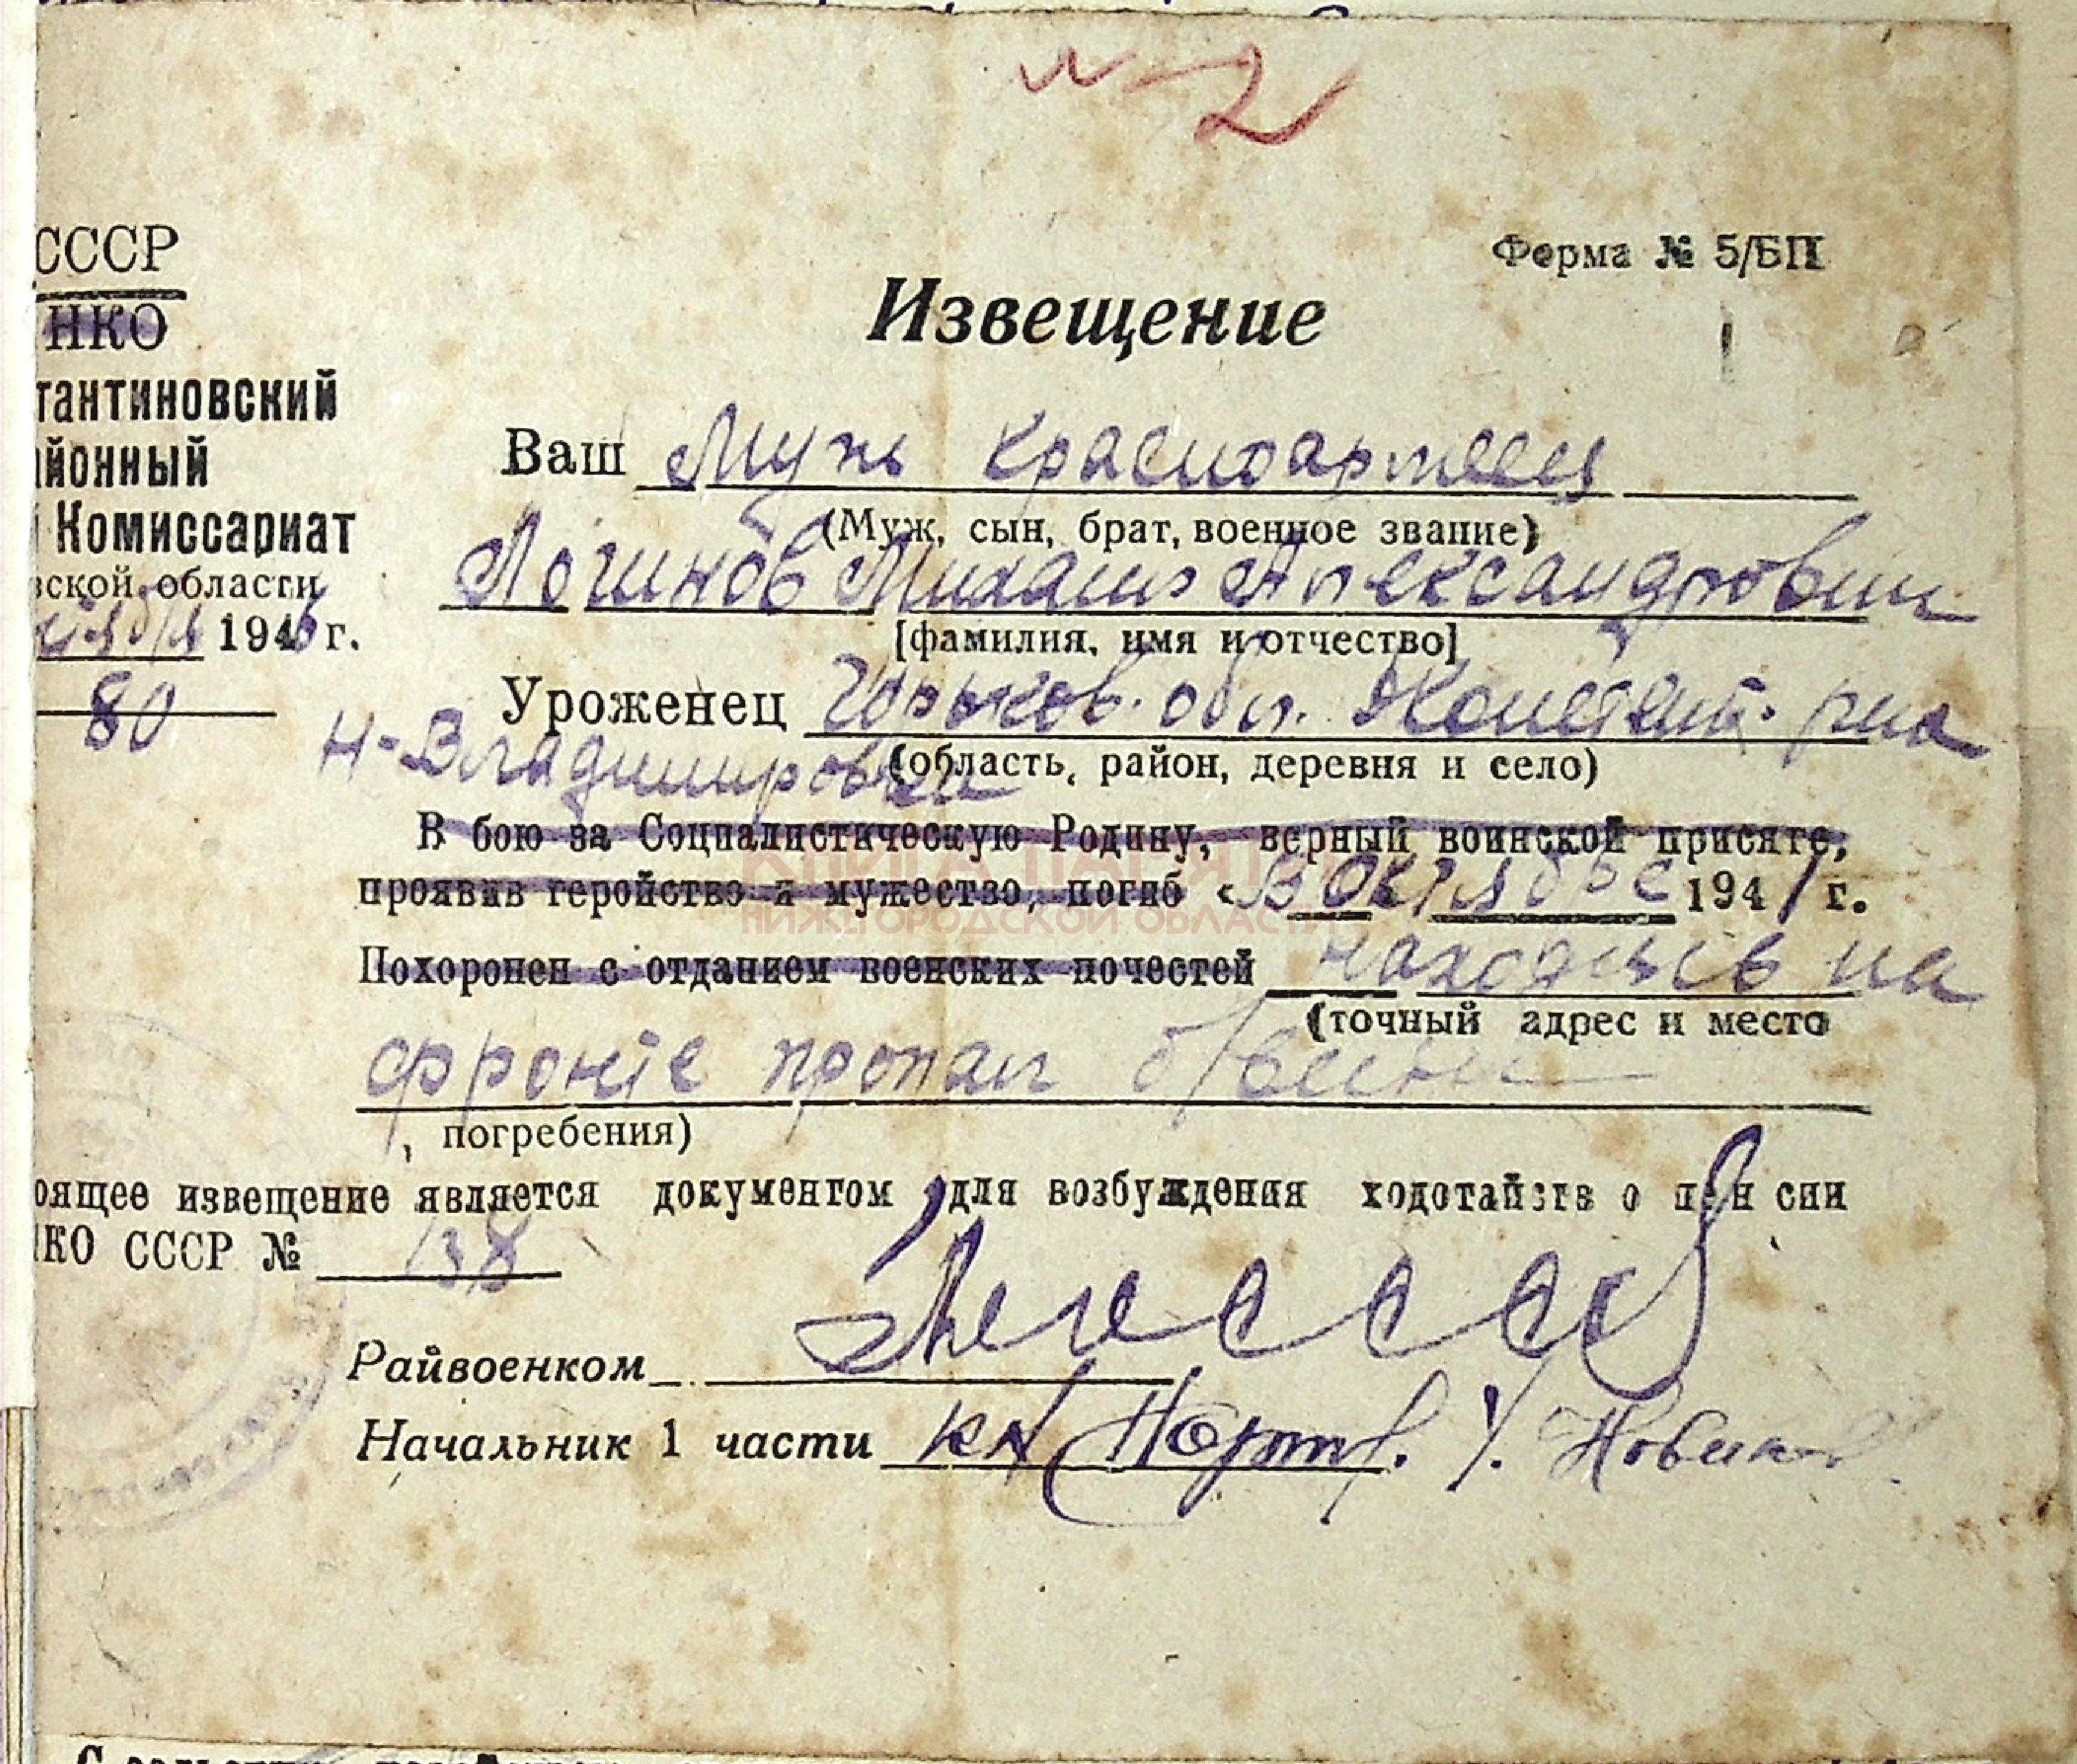 № 2
СССР
НКО
тантиновский
йонный
Комиссариат
ской области
1946 г.
80
Форма № 5/БП
Извещение
Ваш Муж красноармеец
(Муж, сын, брат, военное звание)
Логинов Михаил Александрович
[фамилия, имя и отчество]
Уроженец Горьков. обл. Констант. р-на
Н-Владимировка
(область, район, деревня и село)
В бою за Социалистическую Родину, верный воинской присяге,
проявив геройство и мужество, погиб «В октябре 1941 г.
КНИГА ПАМЯТИ
НИЖЕГОРОДСКОЙ ОБЛАСТИ
Похоронен с отданием военских почестей находясь на
(точный адрес и место
фронте пропал б/вести
погребения)
оящее извещение является документом для возбуждения ходотайств о пенсии
КО СССР № 138
Райвоенком
Начальник 1 части